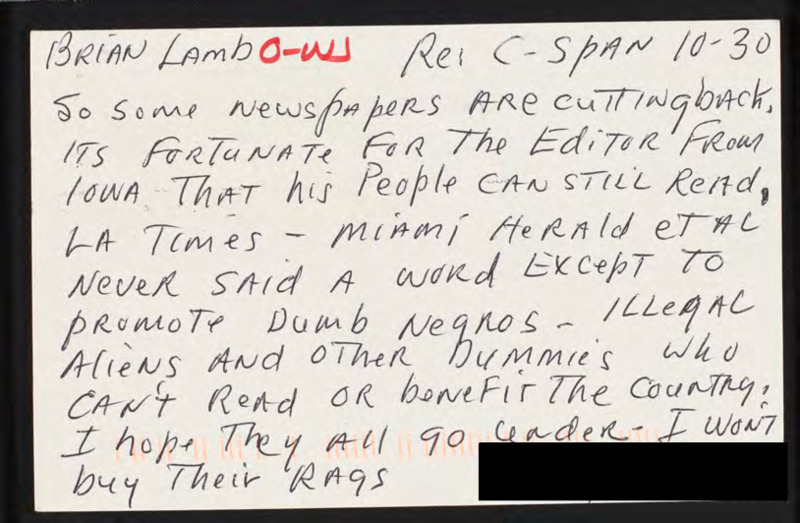 BRIAN LAMB O-W Re: C-SPAN 10-30
So Some Newspapers ARE cuttingback,
ITS FORTUNATE FOR The Editor From
IOWA THAT his People CAN STILL Read,
LA Times - Miami Herald eT AL
Never SAid A word EXcept TO
promote Dumb Negros - ILLegAL
Aliens AND OTHer Dummies who
CAN't Read OR beneFit The Country,
I hope They All go under - I WON'T
buy Their RAgs